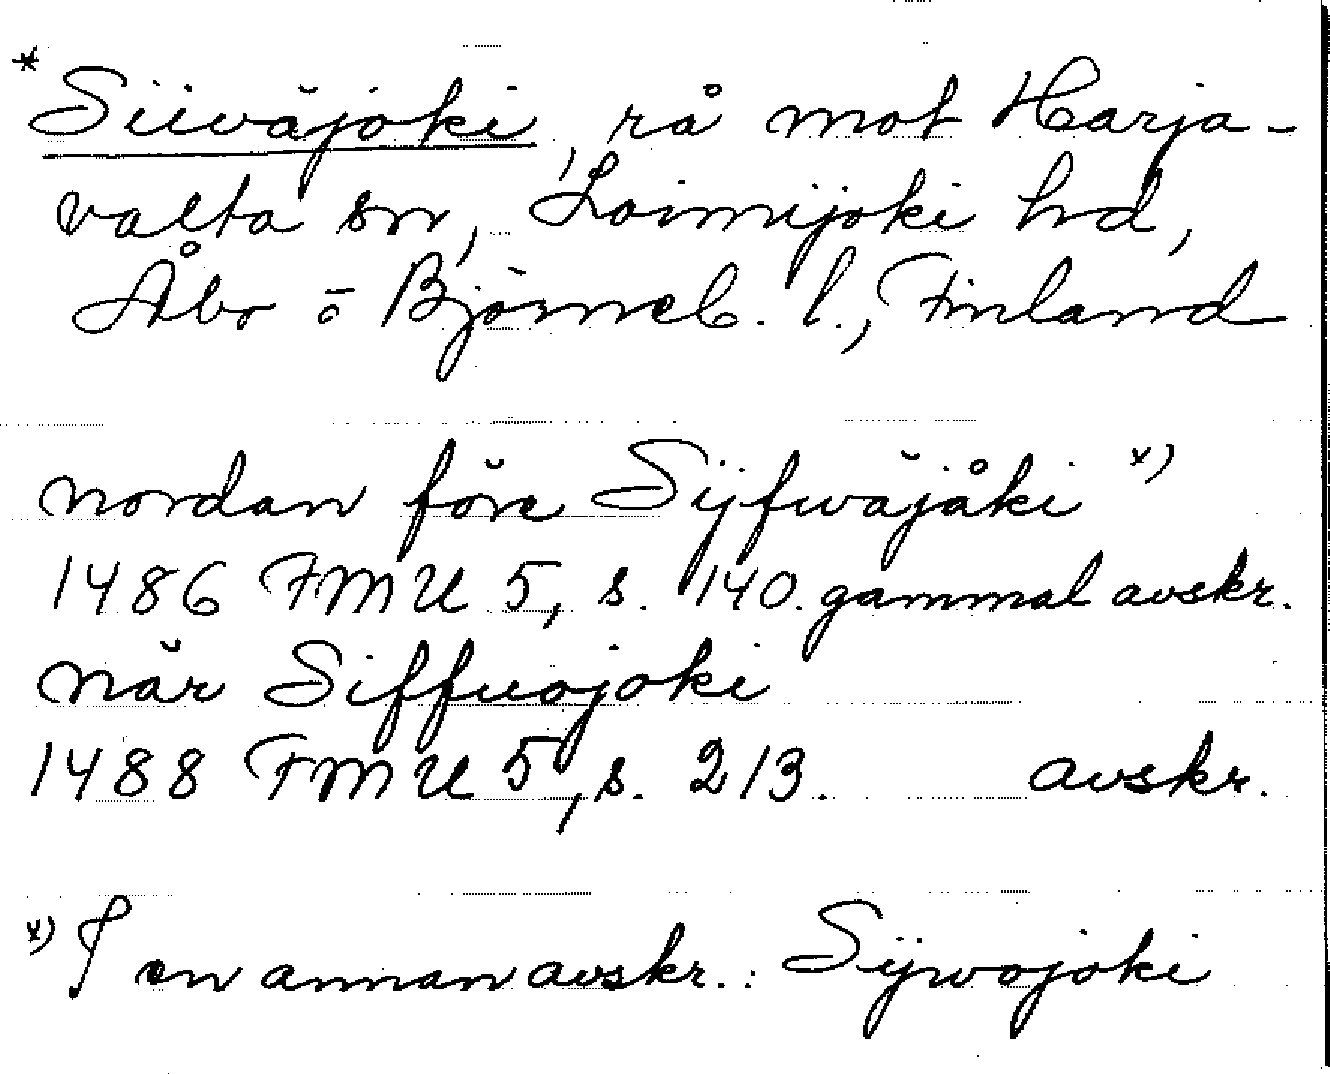 * Siiväjoki, rå mot Harja-
valta sn, Loimijoki hd,
Åbo o Björneb. l., Finland
nordan före Sijfwäjåki x)
1486 FMU 5, s. 140. gammal avskr.
när Siffuojoki
1488 FMU 5, s. 213. avskr.
x) I en annan avskr.: Sijwojoki